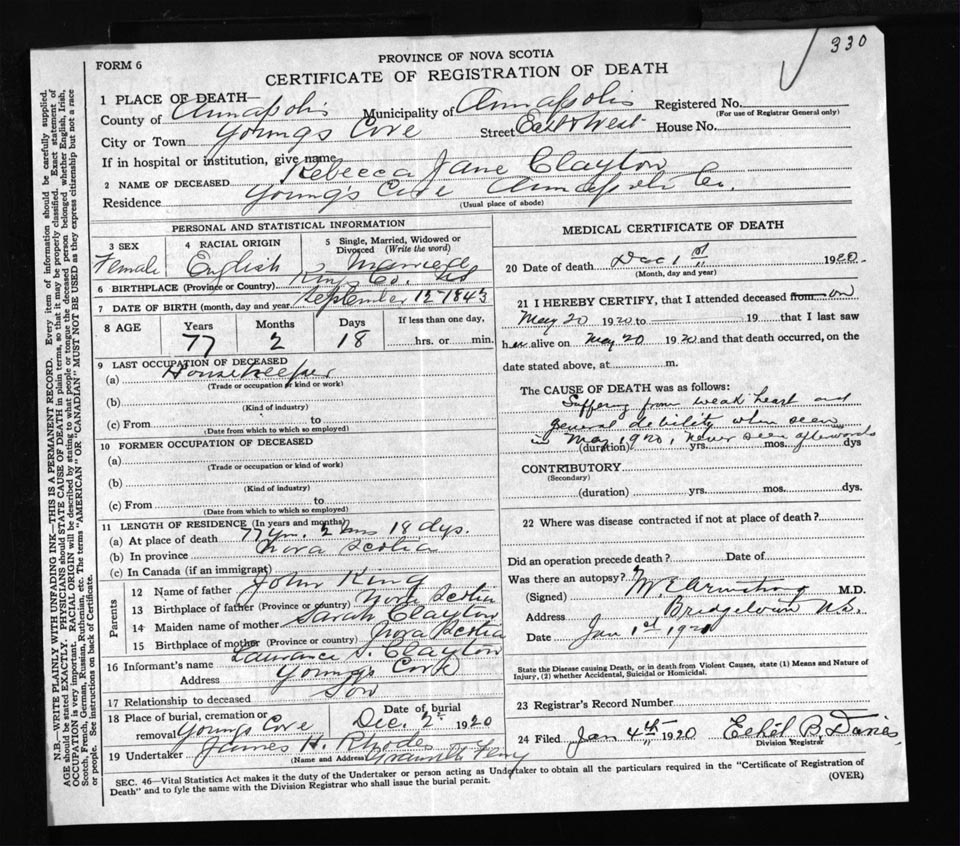 330
FORM 6
PROVINCE OF NOVA SCOTIA
CERTIFICATE OF REGISTRATION OF DEATH
1 PLACE OF DEATH—
County of Annapolis Municipality of Annapolis Registered No.
(For use of Registrar General only)
City or Town Youngs Cove Street East & West House No.
If in hospital or institution, give name
2 NAME OF DECEASED Rebecca Jane Clayton
Residence Young's Cove Annapolis Co.
(Usual place of abode)
PERSONAL AND STATISTICAL INFORMATION
3 SEX Female
4 RACIAL ORIGIN English
5 Single, Married, Widowed or Divorced (Write the word) Married
6 BIRTHPLACE (Province or Country) Kings Co. NS
7 DATE OF BIRTH (month, day and year) September 12-1843
8 AGE Years 77 Months 2 Days 18 If less than one day, hrs. or min.
9 LAST OCCUPATION OF DECEASED
(a) Housekeeper
(Trade or occupation or kind or work)
(b)
(Kind of industry)
(c) From to
(Date from which to which so employed)
10 FORMER OCCUPATION OF DECEASED
(a)
(Trade or occupation or kind of work)
(b)
(Kind of industry)
(c) From to
(Date from which to which so employed)
11 LENGTH OF RESIDENCE (In years and months)
(a) At place of death 77 yrs. 2 mos 18 dys.
(b) In province Nova Scotia
(c) In Canada (if an immigrant)
Parents
12 Name of father John King
13 Birthplace of father (Province or country) Nova Scotia
14 Maiden name of mother Sarah Clayton
15 Birthplace of mother (Province or country) Nova Scotia
16 Informant's name Laurance S. Clayton
Address Young's Cove
17 Relationship to deceased Son
18 Place of burial, cremation or removal Youngs Cove Date of burial Dec. 2nd 1920
19 Undertaker James H. Rhodes
(Name and Address) Granville Ferry
MEDICAL CERTIFICATE OF DEATH
20 Date of death Dec 1st 1920
(Month, day and year)
21 I HEREBY CERTIFY, that I attended deceased from on
May 20 1920 to 19 that I last saw
her alive on May 20 1920 and that death occurred, on the
date stated above, at m.
The CAUSE OF DEATH was as follows:
Suffering from weak heart and
general debility when seen
in May 1920, never seen afterwards
(duration) yrs. mos. dys
CONTRIBUTORY
(Secondary)
(duration) yrs. mos. dys.
22 Where was disease contracted if not at place of death?
Did an operation precede death? Date of
Was there an autopsy?
(Signed) M E Armstrong M.D.
Address Bridgetown N.S.
Date Jan 1st 1920
State the Disease causing Death, or in death from Violent Causes, state (1) Means and Nature of
Injury, (2) whether Accidental, Suicidal or Homicidal.
23 Registrar's Record Number
24 Filed Jan 4th 1920 Ethel B. Davies
Division Registrar
SEC. 46—Vital Statistics Act makes it the duty of the Undertaker or person acting as Undertaker to obtain all the particulars required in the "Certificate of Registration of
Death" and to fyle the same with the Division Registrar who shall issue the burial permit.
(OVER)
N.B.—WRITE PLAINLY WITH UNFADING INK—THIS IS A PERMANENT RECORD. Every item of information should be carefully supplied.
AGE should be stated EXACTLY. PHYSICIANS should STATE CAUSE OF DEATH in plain terms, so that it may be properly classified. Exact statement of
OCCUPATION is very important. RACIAL ORIGIN will be described by stating to what people or tongue the deceased person belonged whether English, Irish,
Scotch, French, German, Russian, Ruthenian, etc. The terms "AMERICAN" OR "CANADIAN" MUST NOT BE USED as they express citizenship but not a race
or people. See instructions on back of Certificate.